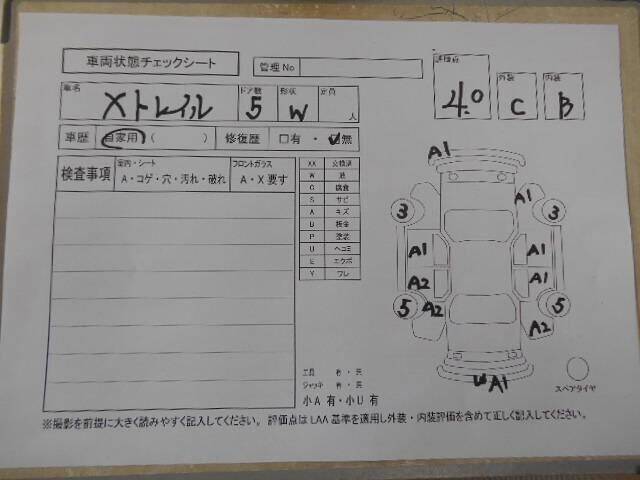 車両状態チェックシート
管理No
評価点 4.0
外装 C
内装 B
車名 Xトレイル
ドア数 5
形状 W
定員 人
車歴 自家用 ( ) 修復歴 □有・☑無
検査事項
室内・シート
A・コゲ・穴・汚れ・破れ
フロントガラス
A・X要す
XX 交換済
W 波
C 腐食
S サビ
A キズ
B 板金
P 塗装
U ヘコミ
E エクボ
Y ワレ
A1
A1
3
3
A1
A1
A2
A1
5
A2
5
A2
W A1
スペアタイヤ
工具 有・無
ジャッキ 有・無
小A 有・小U 有
※撮影を前提に大きく読みやすく記入してください。評価点はLAA基準を適用し外装・内装評価を含めて正しく記入してください。